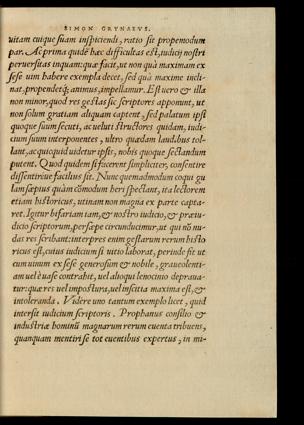 SIMON GRYNAEVS.
uitam cuique suam inspiciendi, ratio sit propemodum
par. Ac prima quidē hæc difficultas est, iudicij nostri
peruersitas inquam: quæ facit, ut non quà maximam ex
sese uim habere exempla decet, sed quà maxime incli
nat, propendetq́; animus, impellamur. Est uero & illa
non minor, quod res gestas sic scriptores apponunt, ut
non solum gratiam aliquam captent, sed palatum ipsi
quoque suum secuti, ac ueluti structores quidam, iudi-
cium suum interponentes, ultro quædam laudibus tol-
lant, ac quicquid uidetur ipsis, nobis quoque sectandum
putent. Quod quidem si facerent simpliciter, consentire
dissentiréue facilius sit. Nunc quemadmodum coqui gu
lam sæpius quàm cōmodum heri spectant, ita lectorem
etiam historicus, utinam non magna ex parte capta-
ret. Igitur bifariam iam, & nostro iudicio, & præiu-
dicio scriptorum, persæpe circunducimur, ut qui nō nu-
das res scribant: interpres enim gestarum rerum histo
ricus est, cuius iudicium si uitio laborat, perinde fit ut
cum uinum ex sese generosum & nobile, graueolenti-
am uel è uase contrahit, uel alioqui lenocinio depraua-
tur: quæ res uel impostura, uel inscitia maxima est, &
intoleranda. Videre uno tantum exemplo licet, quid
intersit iudicium scriptoris. Prophanus consilio &
industriæ hominū magnarum rerum euenta tribuens,
quanquam mentiri se tot euentibus expertus, in mi-